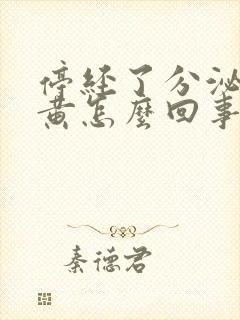 停經了分泌
黃怎麼回事
秦德君